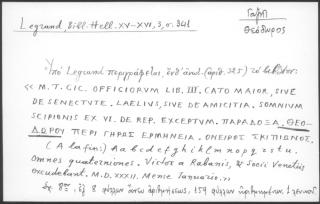 Legrand, Bibl. Hell. XV-XVI, 3, σ. 341
Γαζῆ
Θεόδωρος
Ὑπὸ Legrand περιγράφεται, ὑπ' ἀριθ. 325 τὸ
« M. T. CIC. OFFICIORUM LIB. III. CATO MAIOR, SIVE
DE SENECTUTE. LAELIUS, SIVE DE AMICITIA. SOMNIUM
SCIPIONIS EX VI. DE REP. EXCEPTUM. ΠΑΡΑΔΟΞΑ. ΘΕΟ-
ΔΩΡΟΥ ΠΕΡΙ ΓΗΡΩΣ ΕΡΜΗΝΕΙΑ. ΟΝΕΙΡΟΣ ΣΚΙΠΙΩΝΟΣ.
(A la fin:) A a b c d e f g h i k l m n o p q r s t u.
Omnes quaterniones. Victor a Rabanis, & Socii Venetiis
excudebant. M.D.XXXII. Mense Ianuario.»
8ον, ἐξ 8 φύλλων ἄνευ ἀριθμήσεως, 159 φύλλων ἠριθμημένων, 1 λευκοῦ.